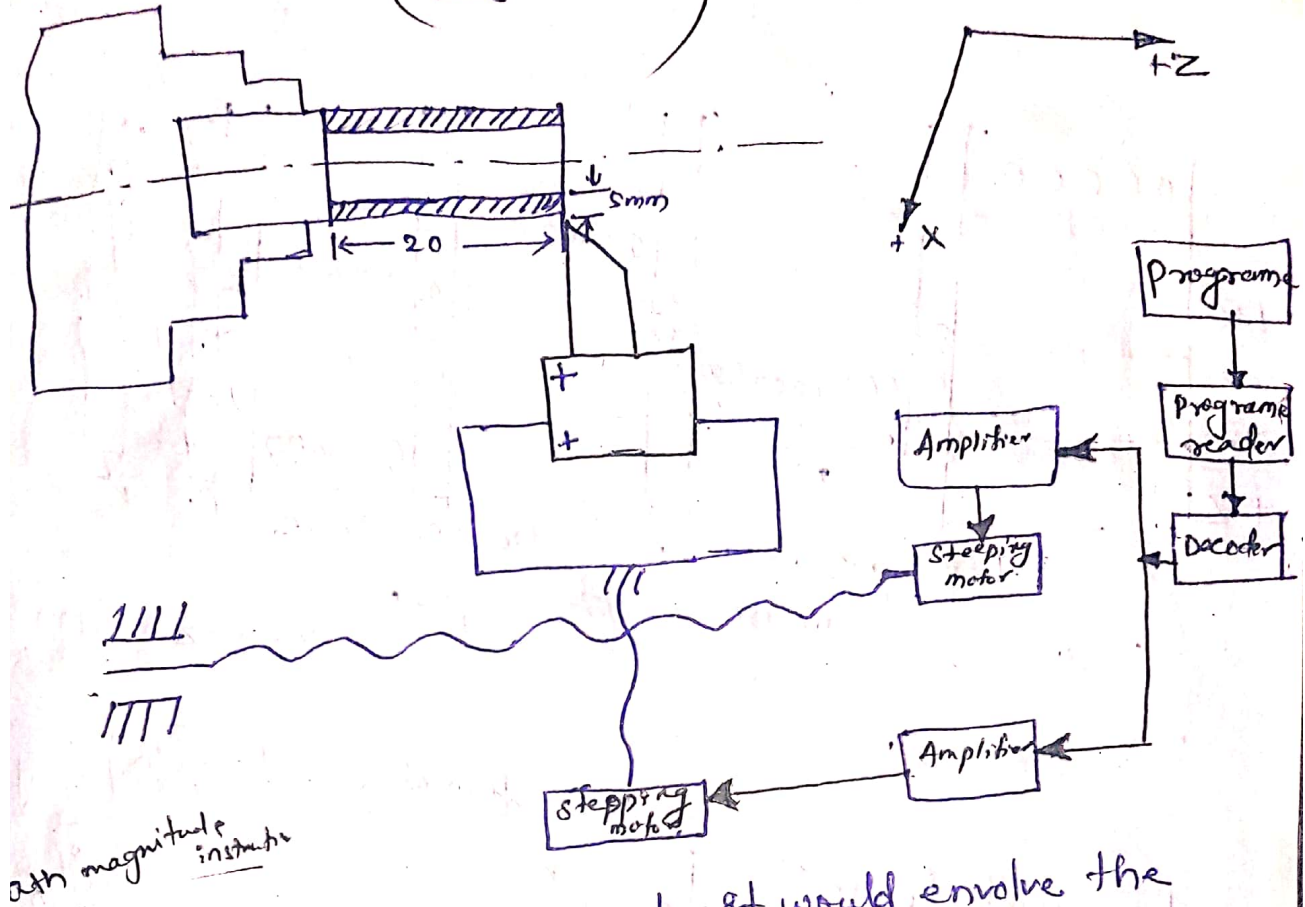 +Z
5mm
20
+ X
Programe
Programe
reader
+
Amplifier
+
Decoder
Steeping
motor
Amplifier
Stepping
motor
magnitude
instruction
It would envolve the